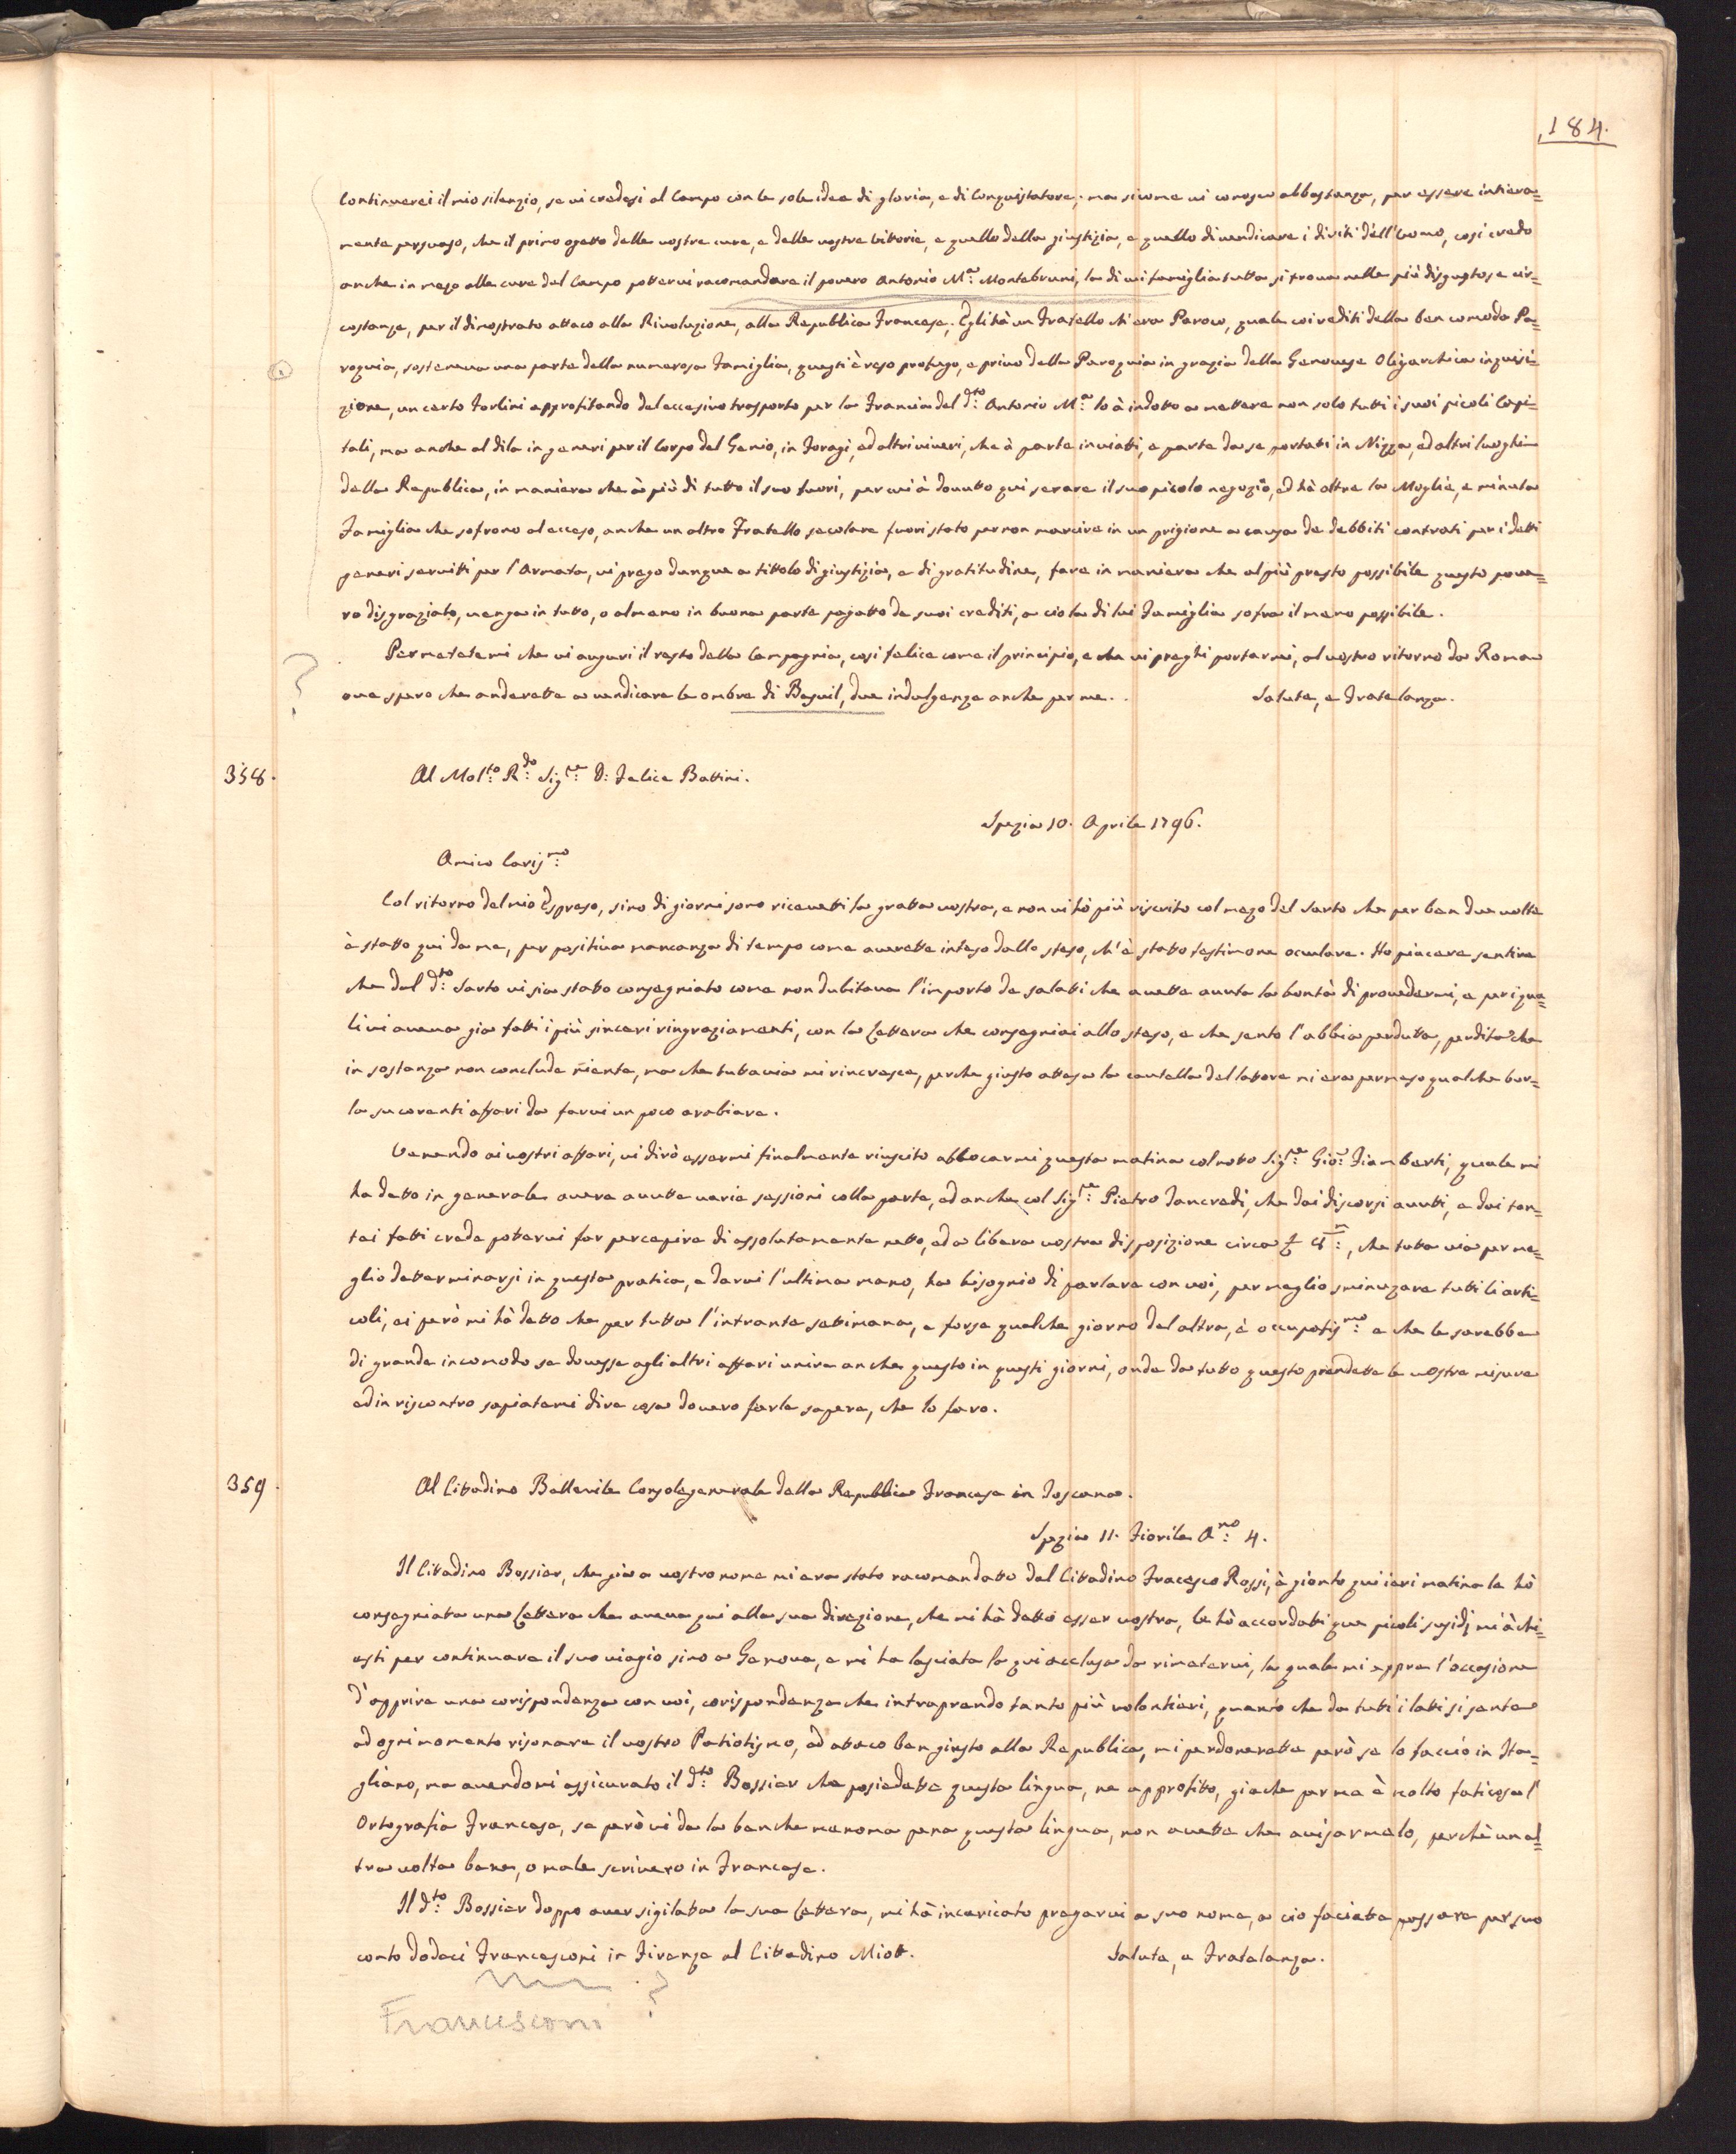 184.
Continuerei il mio silenzio, se vi credesi al Campo con le sole idee di gloria, e di Conquistatore; ma sicome vi conosco abbastanza, per essere intiera=
mente persuaso, che il primo ogetto delle vostre cure, e delle vostre vittorie, e quello della giustizia, e quello di vendicare i diritti dell'Uomo, così credo
anche in mezo alle cure del Campo pottervi racomandare il povero Antonio M.a Montebruni, la di cui famiglia tutta si trova nelle più disgustose cir=
costanze, per il dimostrato attaco alla Rivoluzione, alla Republica Francese. Egli hà un Fratello ch'era Paroco, quale coi rediti della ben comoda Pa=
roquia, sosteneva una parte della numerosa Famiglia, questi è reso profugo, e privo della Paroquia in grazia della Genovese Oligarchica inquisi=
zione, un certo Torlini approfitando del eccesivo trasporto per la Francia del d.to Antonio M.a lo à indotto a mettere non solo tutti i suoi picoli Capi=
tali, ma anche al di la in generi per il Corpo del Genio, in Foragi, ed altri viveri, che à parte inviatti, e parte da se portati in Nizza, ed altri luoghi
della Republica, in maniera che à più di tutto il suo fuori, per cui à dovutto qui serare il suo picolo negozio, ed hà oltre la Moglie, e minuta
Famiglia che sofrono al ecceso, anche un altro Fratello secolare fuori stato per non marcire in un prigione a causa de debbiti contrati per i detti
generi servitti per l'Armata, vi prego dunque a tittolo di giustizia, e di gratitudine, fare in maniera che al più presto possibile questo pove=
ro disgraziato, venga in tutto, o almeno in buona parte pagatto de suoi crediti, a cio la di lui Famiglia sofra il meno possibile.
Permetetemi che vi auguri il resto della Campagnia, cosi felice come il principio, e che vi preghi portarmi, al vostro ritorno da Roma
ove spero che anderette a vendicare le ombre di Basvil, due indulgenze anche per me. Salute, e Fratelanza.
?
358.
Al Mol.to R.do Sig.re D: Felice Battini.
Spezia 10. Aprile 1796.
Amico Caris.mo
Col ritorno del mio Espreso, sino di giorni sono ricevetti la gratta vostra, e non vi hò più riscrito col mezo del Sarto che per ben due volte
è statto qui da me, per positiva mancanza di tempo come averette inteso dallo steso, ch'è statto testimone oculare. Ho piacere sentire
che dal d.to Sarto vi sia statto consegniato come non dubitava l'importo de salatti che avette avuta la bontà di provedermi, e per i qua=
li vi aveva gia fatti i più sinceri ringraziamenti, con la Lettera che consegniai allo steso, e che sento l'abbia perdutta, perdita che
in sostanza non conclude niente, ma che tuttavia mi rincresce, perche giusto attesa la cautella del latore mi era permeso qualche bur=
la su corenti affari da farvi un poco arabiare.
Venendo ai vostri affari, vi dirò essermi finalmente riuscito abbocarmi questa matina col notto Sig.re Gio: Fiamberti, quale mi
ha detto in generale avere avutte varie sessioni colla parte, ed anche col Sig.re Pietro Tancredi, che dai discorsi avutti, e dai ten=
tai fatti crede pottervi far percepire di assolutamente netto, ed a libera vostra disposizione circa, che tutta via per me=
glio detterminarsi in questa pratica, e darvi l'ultima mano, ha bisognio di parlare con voi, per meglio sminuzare tutti li arti=
coli, ei però mi hà detto che per tutta l'intrante setimana, e forse qualche giorno del altra, è occupatis.mo e che le sarebbe
di grande incomodo se dovesse agli altri affari unire anche questo in questi giorni, onde da tutto questo prendette le vostre misure
ed in riscontro sapiatemi dire cosa dovero farle sapere, che lo faro.
359.
Al Cittadino Bellevile Consolegenerale della Republica Francese in Toscana.
Spezia 11. Fiorile A.no 4.
Il Cittadino Bossier, che già a vostro nome mi era stato racomandatto dal Cittadino Fracesco Rossi, è gionto qui ieri matina le hò
consegniata una Lettera che aveva qui alla sua direzione, che mi hà detto esser vostra, le hò accordatti que picoli susidj mi à chi=
esti per continuare il suo viagio sino a Genova, e mi ha lasciata la qui acclusa da rimetervi, la quale mi appre l'occasione
d'apprire una corispondenza con voi, corispondenza che intraprendo tanto più volontieri, quanto che da tutti i latti si sente
ad ogni momento risonare il vostro Patiotismo, ed attaco ben giusto alla Republica, mi perdonerette però se lo faccio in Ita=
gliano, ma avendomi assicurato il d.to Bossier che posiedette questa lingua, ne approfitto, giache per me è molto faticosa l'
Ortografia Francese, se però vi da la ben che menoma pena questa lingua, non avette che avisarmelo, perchè un al=
tra volta bene, o male scrivero in Francese.
Il d.to Bossier doppo aver sigilatta la sua Lettera, mi hà incaricato pregarvi a suo nome, a cio faciatte passare per suo
conto dodeci Francesconi in Firenze al Cittadino Miott. Salute, e Fratelanza.
Francesconi ?